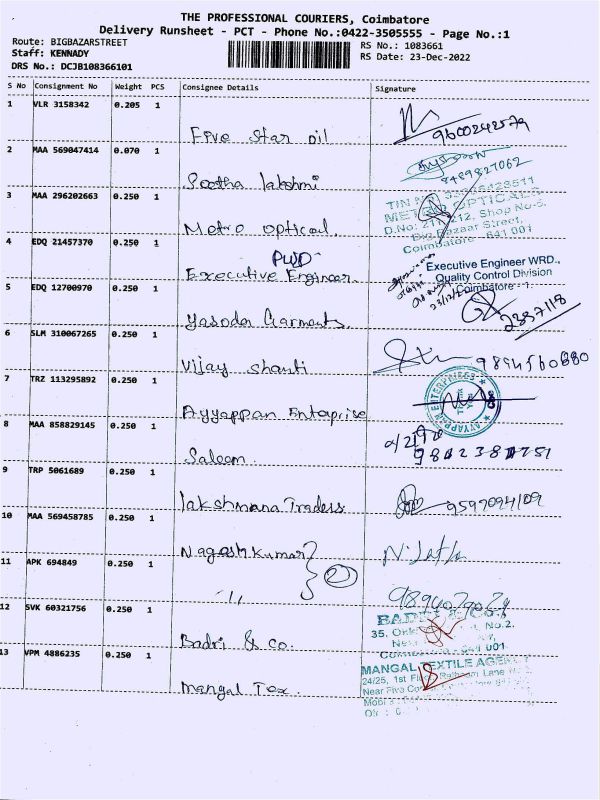 THE PROFESSIONAL COURIERS, Coimbatore
Delivery Runsheet - PCT - Phone No.:0422-3505555 - Page No.:1
Route: BIGBAZARSTREET
Staff: KENNADY
DRS No.: DCJB108366101
RS No.: 1083661
RS Date: 23-Dec-2022
S No Consignment No Weight PCS Consignee Details Signature
1 VLR 3158342 0.205 1
Five Star oil 9600242579
2 MAA 569047414 0.070 1
Seetha lakshmi 8489827062
3 MAA 296202663 0.250 1
Metro optical
TIN
METRO OPTICALS
D.No: 211, 212, Shop No-5,
Big Bazaar Street,
Coimbatore - 641 001
4 EDQ 21457370 0.250 1
PWD
Executive Engineer
Executive Engineer WRD.,
Quality Control Division
Coimbatore - 1.
5 EDQ 12700970 0.250 1
Yasoda Garments 2337118
6 SLM 310067265 0.250 1
Vijay shanti
7 TRZ 113295892 0.250 1
Ayyappan Enteprise
AYYAPPAN ENTERPRISES
8 MAA 858829145 0.250 1
Saleem
9 TRP 5061689 0.250 1
lakshmana Traders 9597094109
10 MAA 569458785 0.250 1
Nagesh Kumar
11 APK 694849 0.250 1
2
12 SVK 60321756 0.250 1
Badri & co.
BADRI & Co.
35, No.2,
001
13 VPM 4886235 0.250 1
Mangal Tex.
MANGAL TEXTILE AGENCY
24/25, 1st Floor Rathnam Lane
Near Five Corner